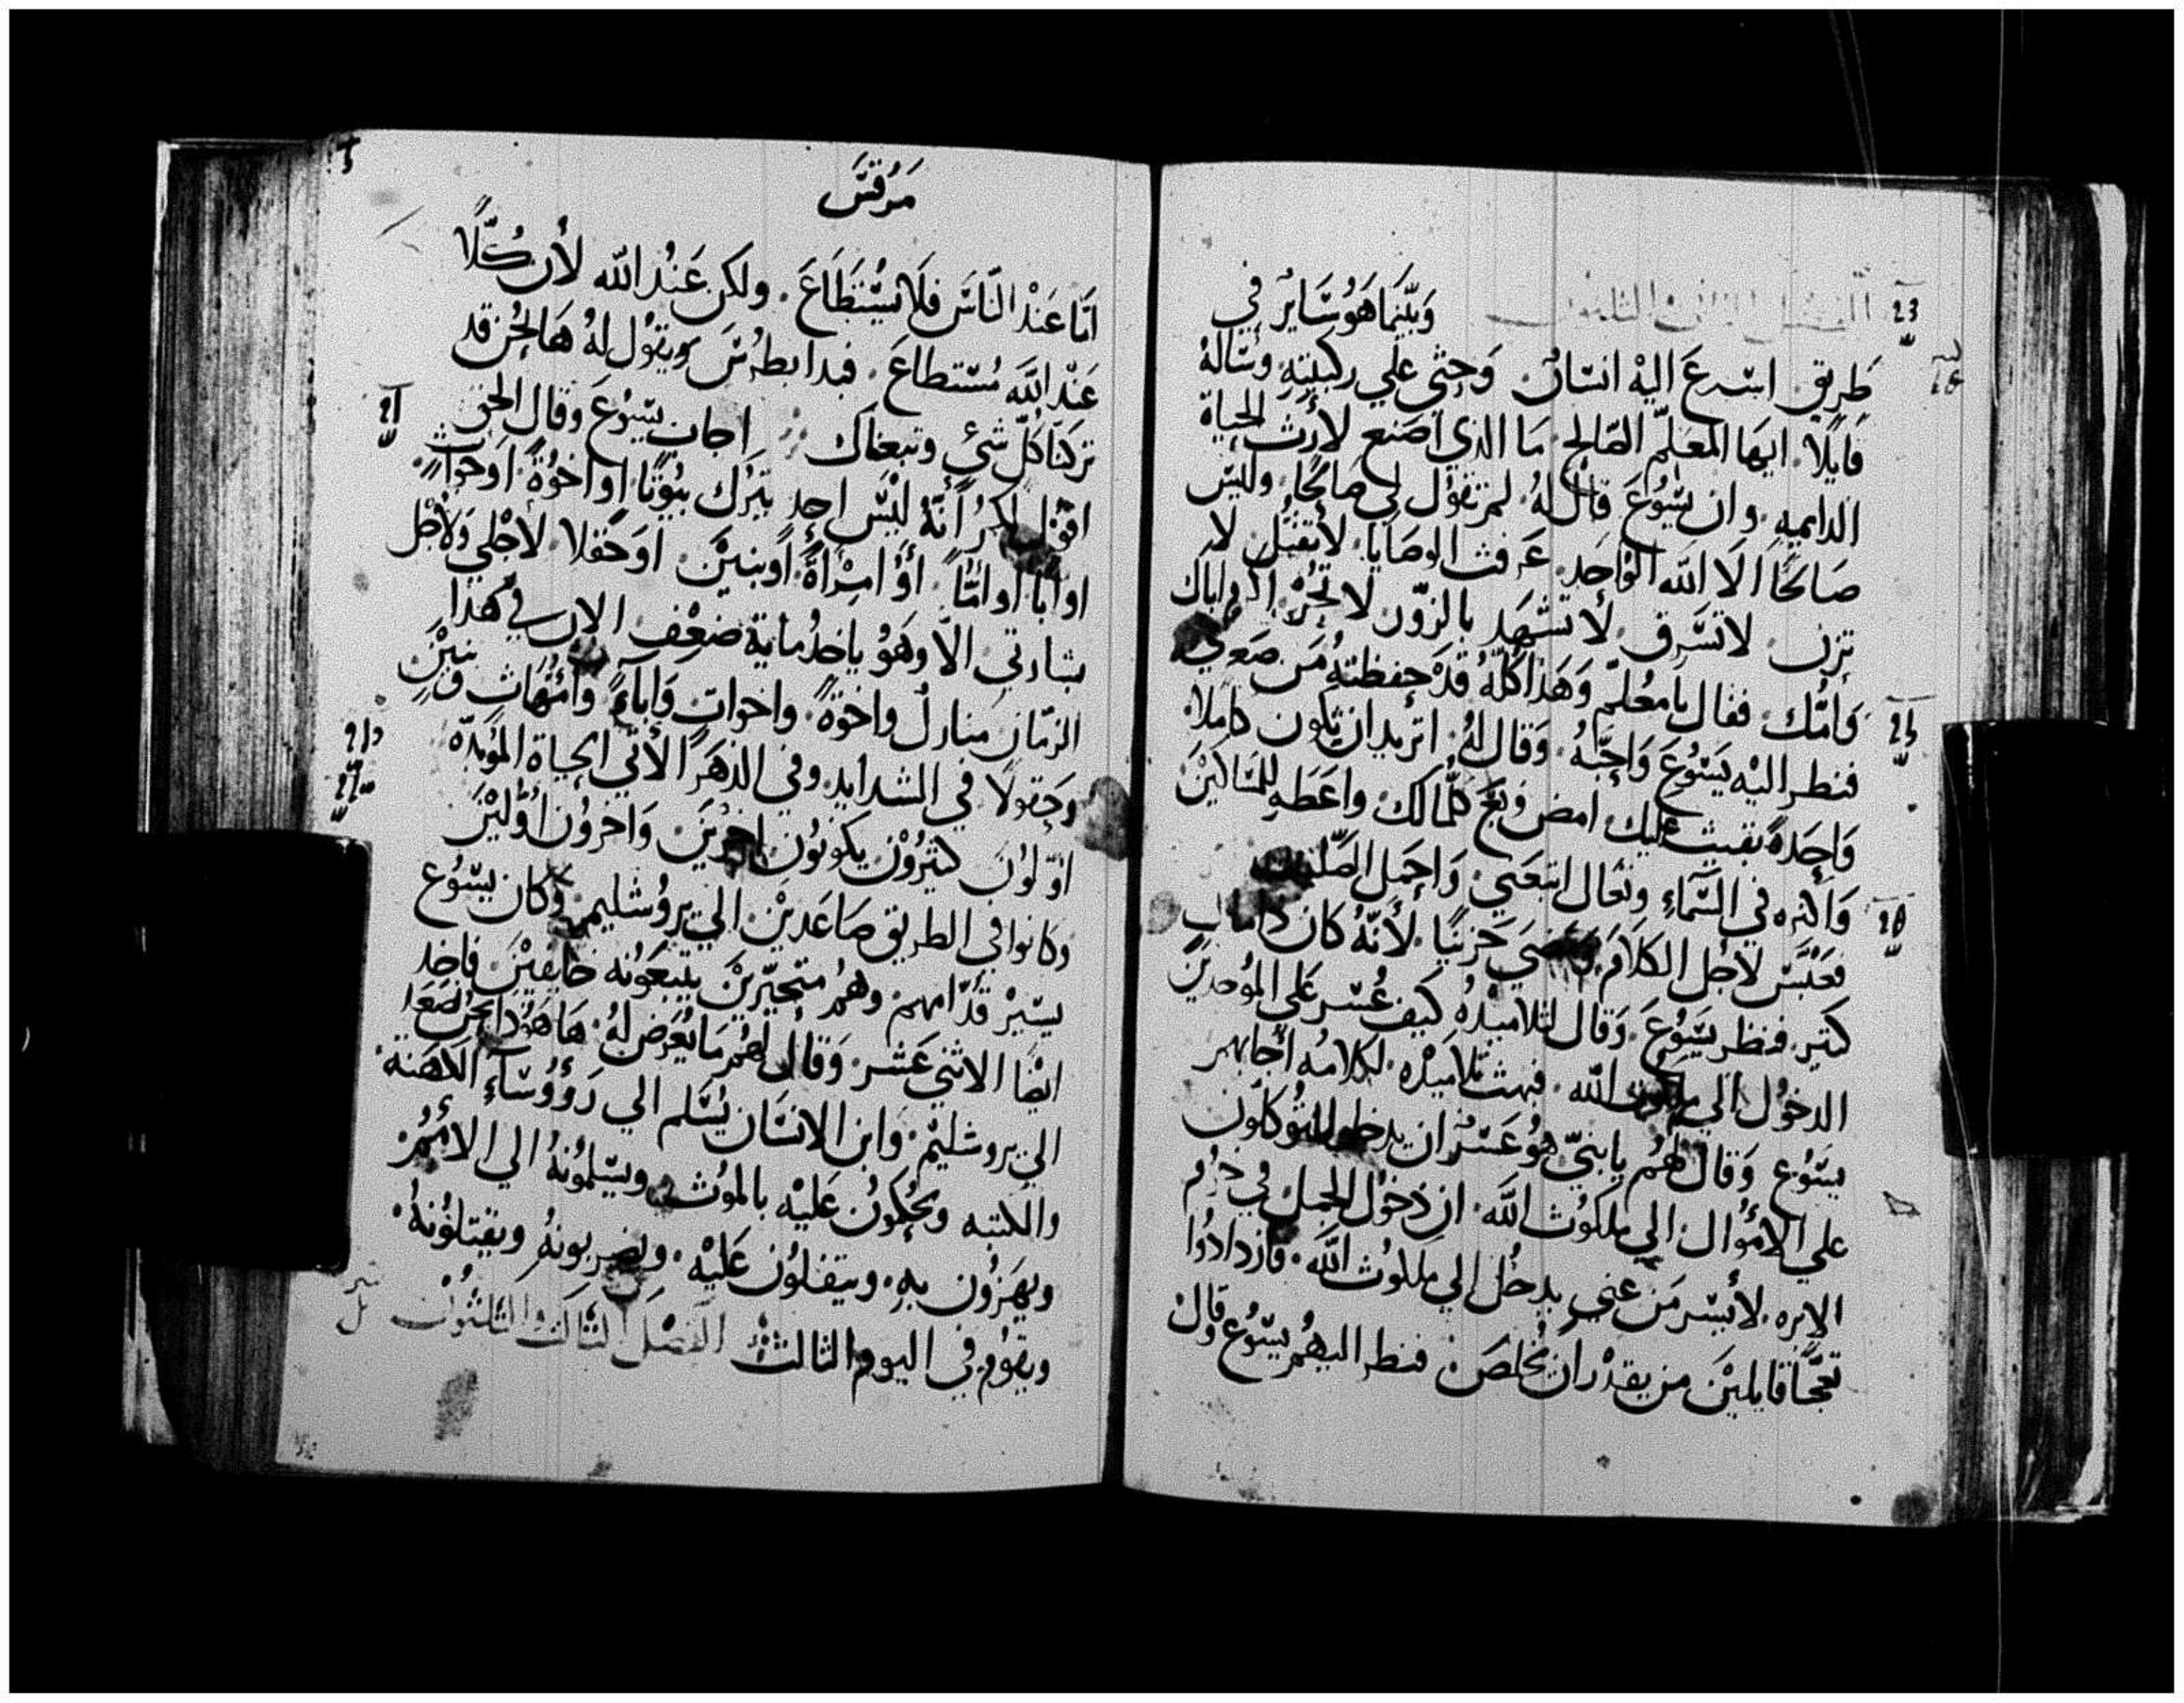 الفصل الثاني والثلثون وَبَيْنَمَا هَوُ سَّايرُ في
طَريق اسْرعَ اليْه انسّان وَجثي علي ركبتيهِ وسّالهُ
قَايلًا. ايها المعَلمّ الصّالح مَا الذي اصَنع لأرث الحياة
الدايميه. وان يسّوُعَ قال لهُ لمَ تقؤل لي صَالحًا. وليّس
صَالحًا الَا اللّه الوَاحِد. عَرفت الوصَايا. لأ تقتُل لا
تزن لا تسّرق. لأ تشّهَد بالزوّر لا تجُرْ اكرم اباك
وَامُّك. فقال يا معُلمّ وَهَذا كلّهُ قدْ حفظتهُ مَن صَغري
فنطر اليْه يَسّوُعَ وَاحِبّهُ. وَقال لهُ. اتريد ان تكون كاملا.
وَاحِدَةً بقيت عليك امض وَبعَ كلّما لك. واعَطهِ للمسَّاكيْن
وَاكنزه في السَّمَاءِ وتعَال اتبَعَني. وَاحمَل الصّليْب
فعَبَسّ لأجْل الكلَامَ وَمضَي حَزينًا. لأنّهُ كان ذا مال
كتير. فنظر يسّوُعَ. وَقال لتلاميذهُ كيفَ عُسّر عَلي المُوحدين
الدخوُل الي ملكوت اللّه. فبهت تلاميذه لكلامُه أجابهمر
يسّوُع وَقال لهُم يا بنيّ هوُ عَسّرُ ان يدخل المتوُكلوُن
علي الأموُال الي ملكوُت اللّهَ. ان دخوُل الجمل في خرم
الإبره. لأيسّر مَن غني يدخُل الي ملكوُت اللّهَ. فازدادوُا
تعَجّبًا قايلينَ من يقدْر ان يخُلصَ. فنطر اليهمُ يسّوُع وقال
مَرْقسَ
امَّا عَنْد النَّاسَ فلَا يسُّتطَاعَ. ولكن عَنُد اللّه لأن كُلًّا
عَنْد اللّهَ مُسّتطاعَ. فبدا بطرُسَ ويقوُل لهُ هَا نحُن قد
تركنَا كلّ شيءٍ وتبعناك اجاب يسّوُعَ وقال الحق
اقوُل لكمُ أنّهُ ليْسّ احدٍ يتْرك بيوُتًا او اخوُةً اوخوات.
او ابًا او امًّا. أوُ امرْأةً. أوبنيْن اوحَقلا لاجْلي وَلأجْل
بشارتي. الّا وَهَوُ ياخدُ مايه ضعْف الان في هَذا
الزمّان منازل واخوَةً. واخواتٍ وَاباءً وامُّهَات وبنيْن
وحَقولًا في الشدايد. وفي الدهرَ الأتي الحياة المؤبدّه
اوّلوُن كثيروُنْ يكونوُن اخريْنَ وَاخروُن اوُّليْنَ
وكانوا في الطريق صَاعَديْن الي يروُشليم. وَكان يسّوُع
يسّيرْ قدّامهم. وهمُ متحيّريْن يتبعَونه خايفيْنَ فاخد
ايضًا الاثني عَشر. وَقال لهمُ مَا يعُرَض لهُ هَا هَوُذا نحنُ نصعَد
الي يروشليْم. وَابن الانسّان يسَّلم الي رَؤُوُسَّاءِ الكهَنة
والكتبه ويحُكموُن عَليْه بالموُت ويسّلموُنهُ الي الأممُر
ويهَزوُن بهِ. ويتفلوُن عَليْه. ويضربونهُ ويقتلوُنهُ.
ويقوُم في اليوم الثالث الفصْل الثالث والثلثوُن